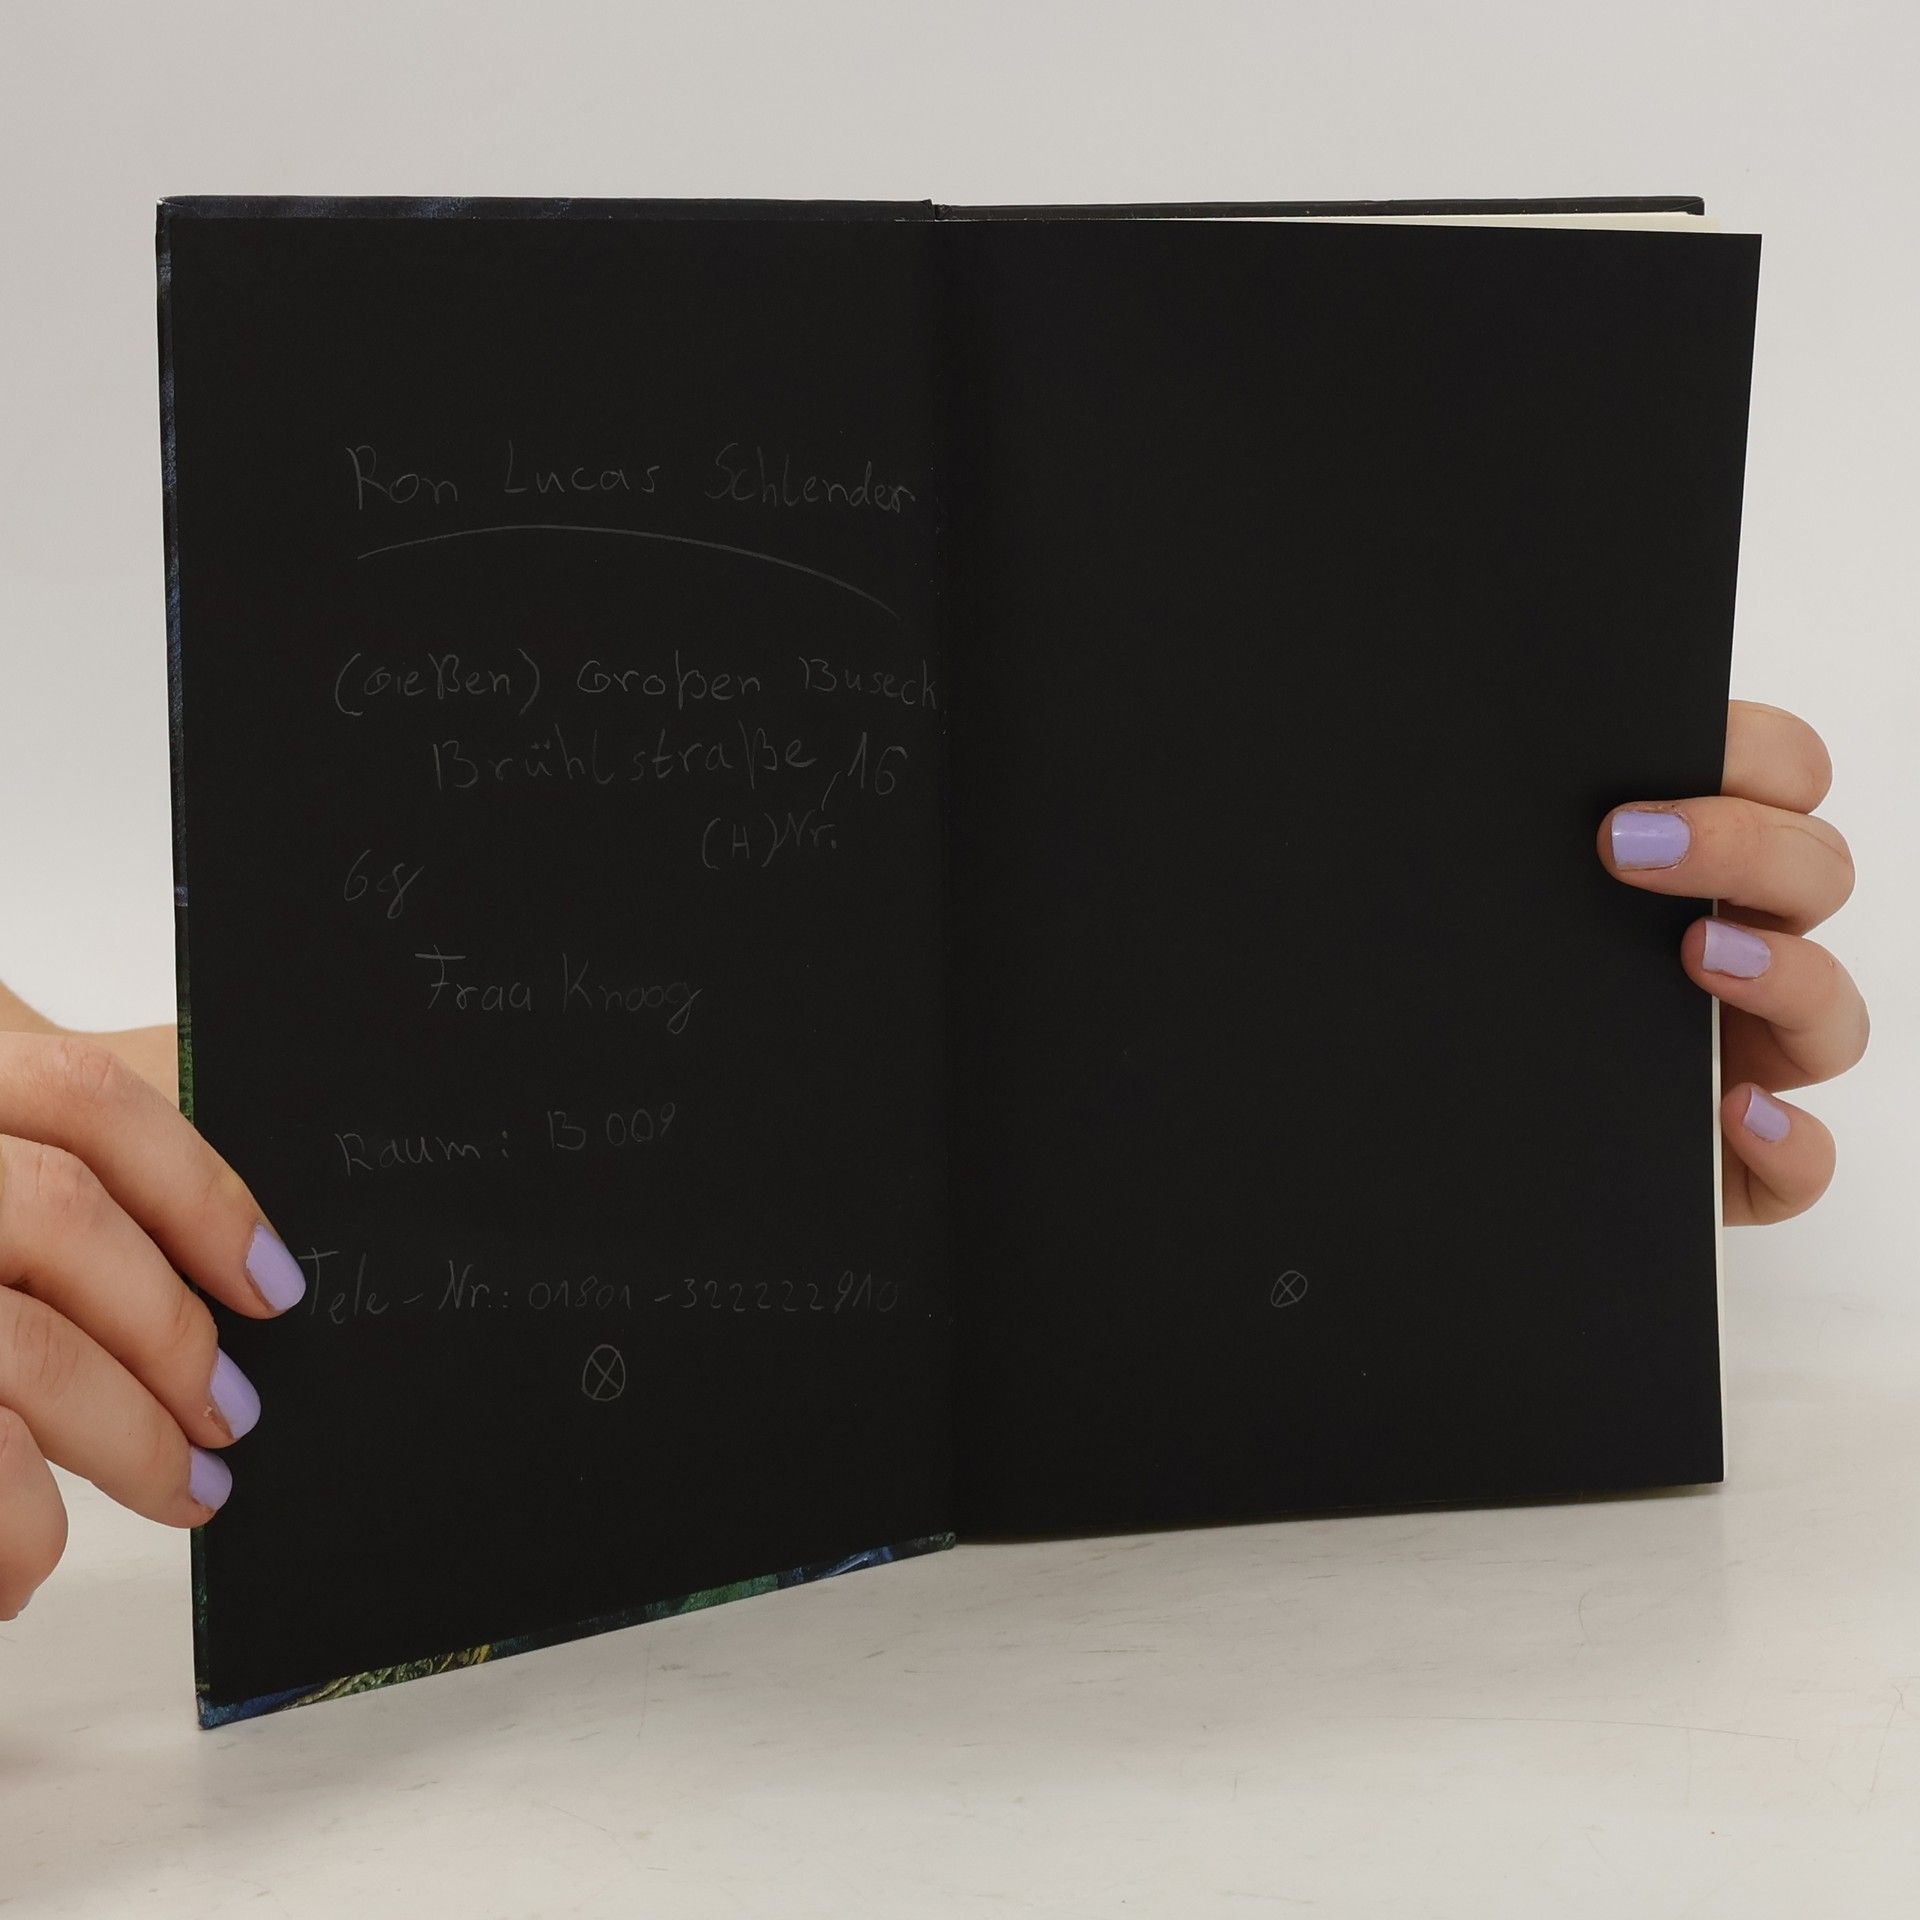 Ron Lucas Schlender
(Gießen) Großen Buseck
Brühlstraße, 16
(H)Nr.
6g
Frau Knoog
Raum: B009
Tele-Nr.: 01801-322222910